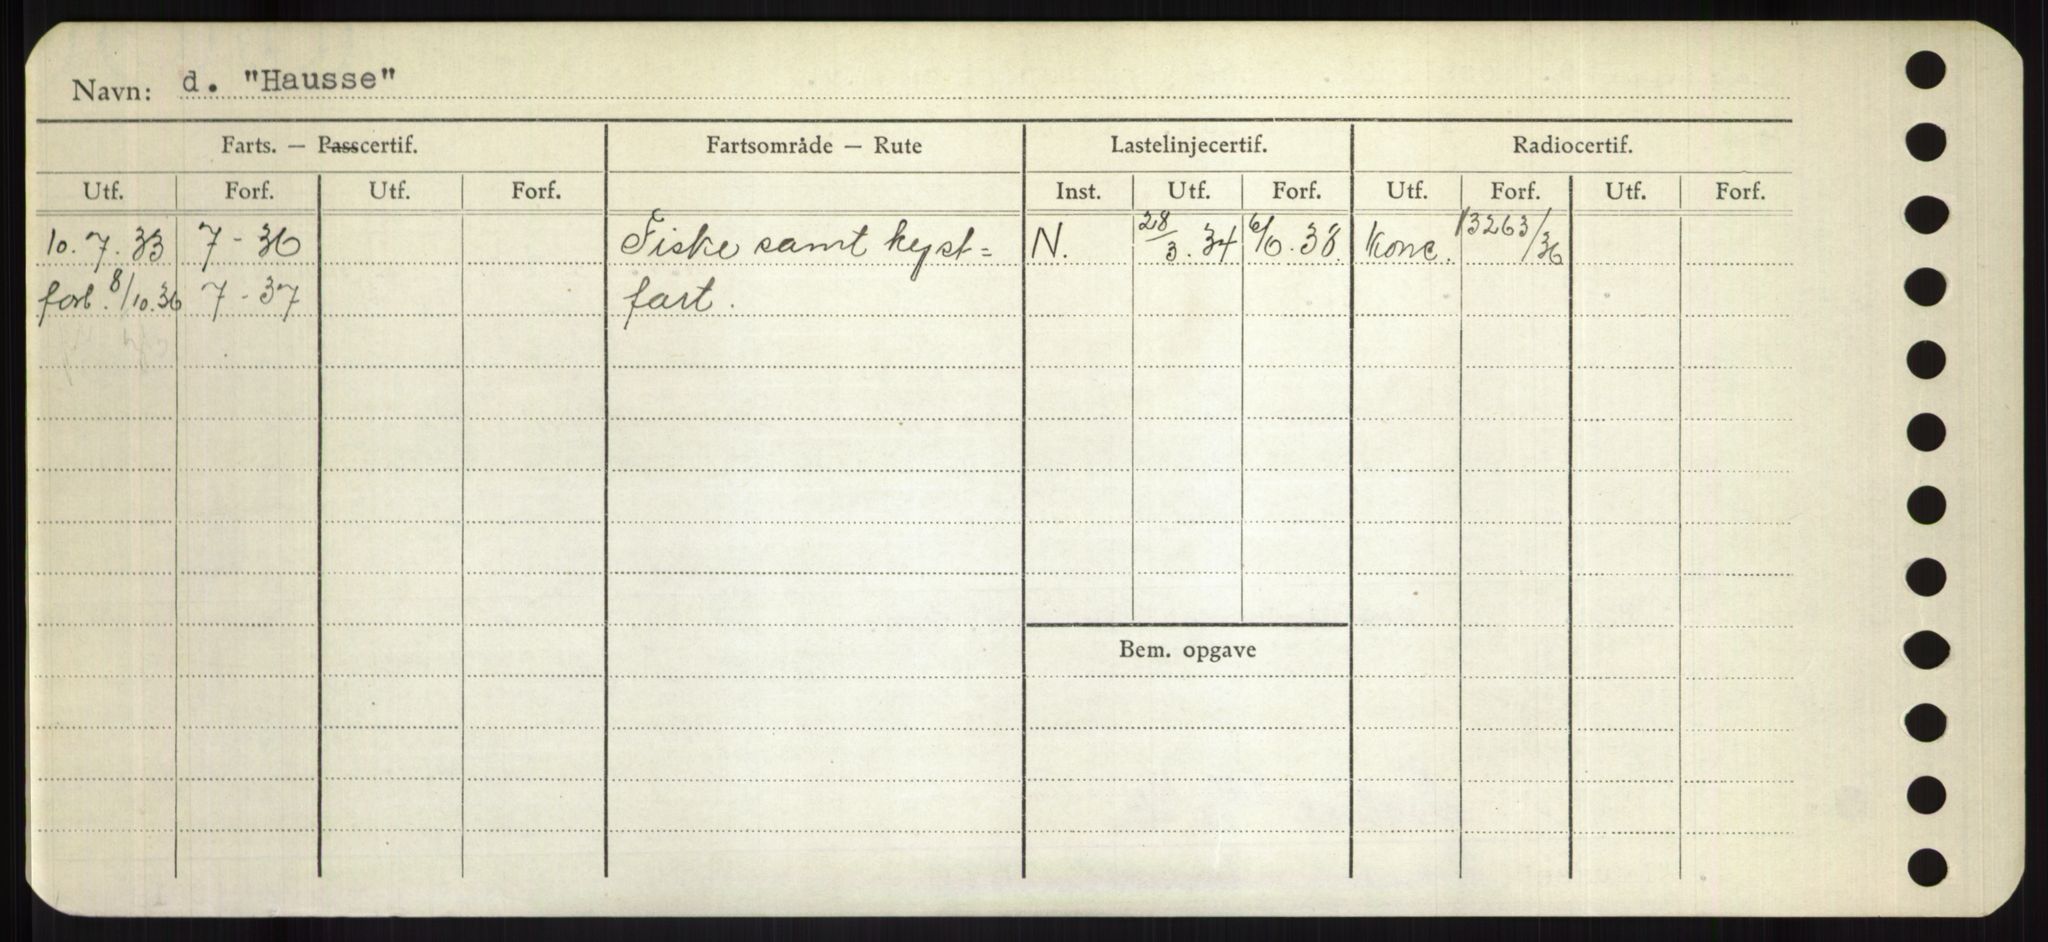 Navn: d. "Hausse"
Farts. — Passcertif. Fartsområde — Rute Lastelinjecertif. Radiocertif.
Utf. Forf. Utf. Forf. Inst. Utf. Forf. Utf. Forf. Utf. Forf.
10. 7. 33 7 - 36 Fiske samt kyst= N. 28/3. 34 6/6. 38. Konc. 13263/36
forl. 8/10. 36 7 - 37 fart.
Bem. opgave